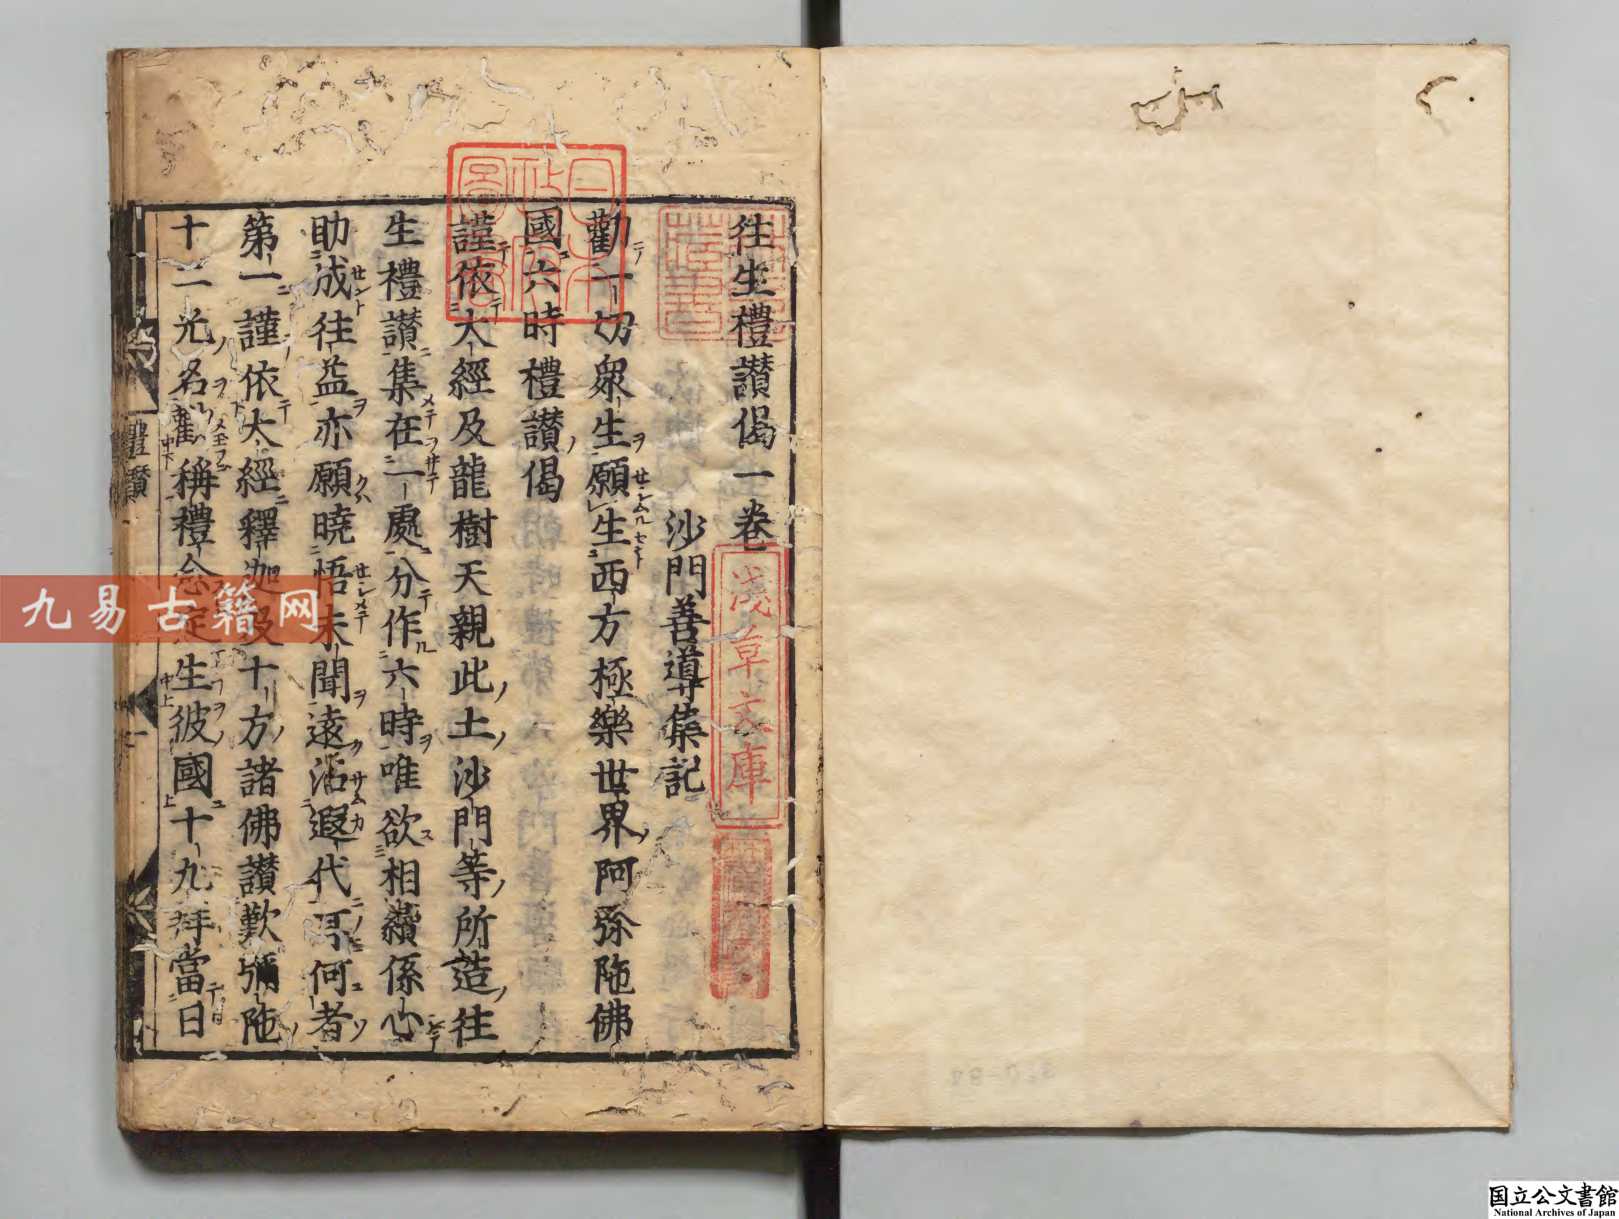 往生禮讃偈一卷
沙門善導集記
勸一切衆生願生西方極樂世界阿弥陁佛
國六時禮讃偈
謹依大經及龍樹天親此土沙門等所造往
生禮讃集在一處分作六時唯欲相續係心
助成往益亦願曉悟未聞遠沾遐代耳何者
第一謹依大經釋迦及十方諸佛讃歎彌陁
十二光名勸稱禮念定生彼國十九拜當日
禮讃
日本
政府
圖書
淺草文庫
九易古籍网
国立公文書館
National Archives of Japan